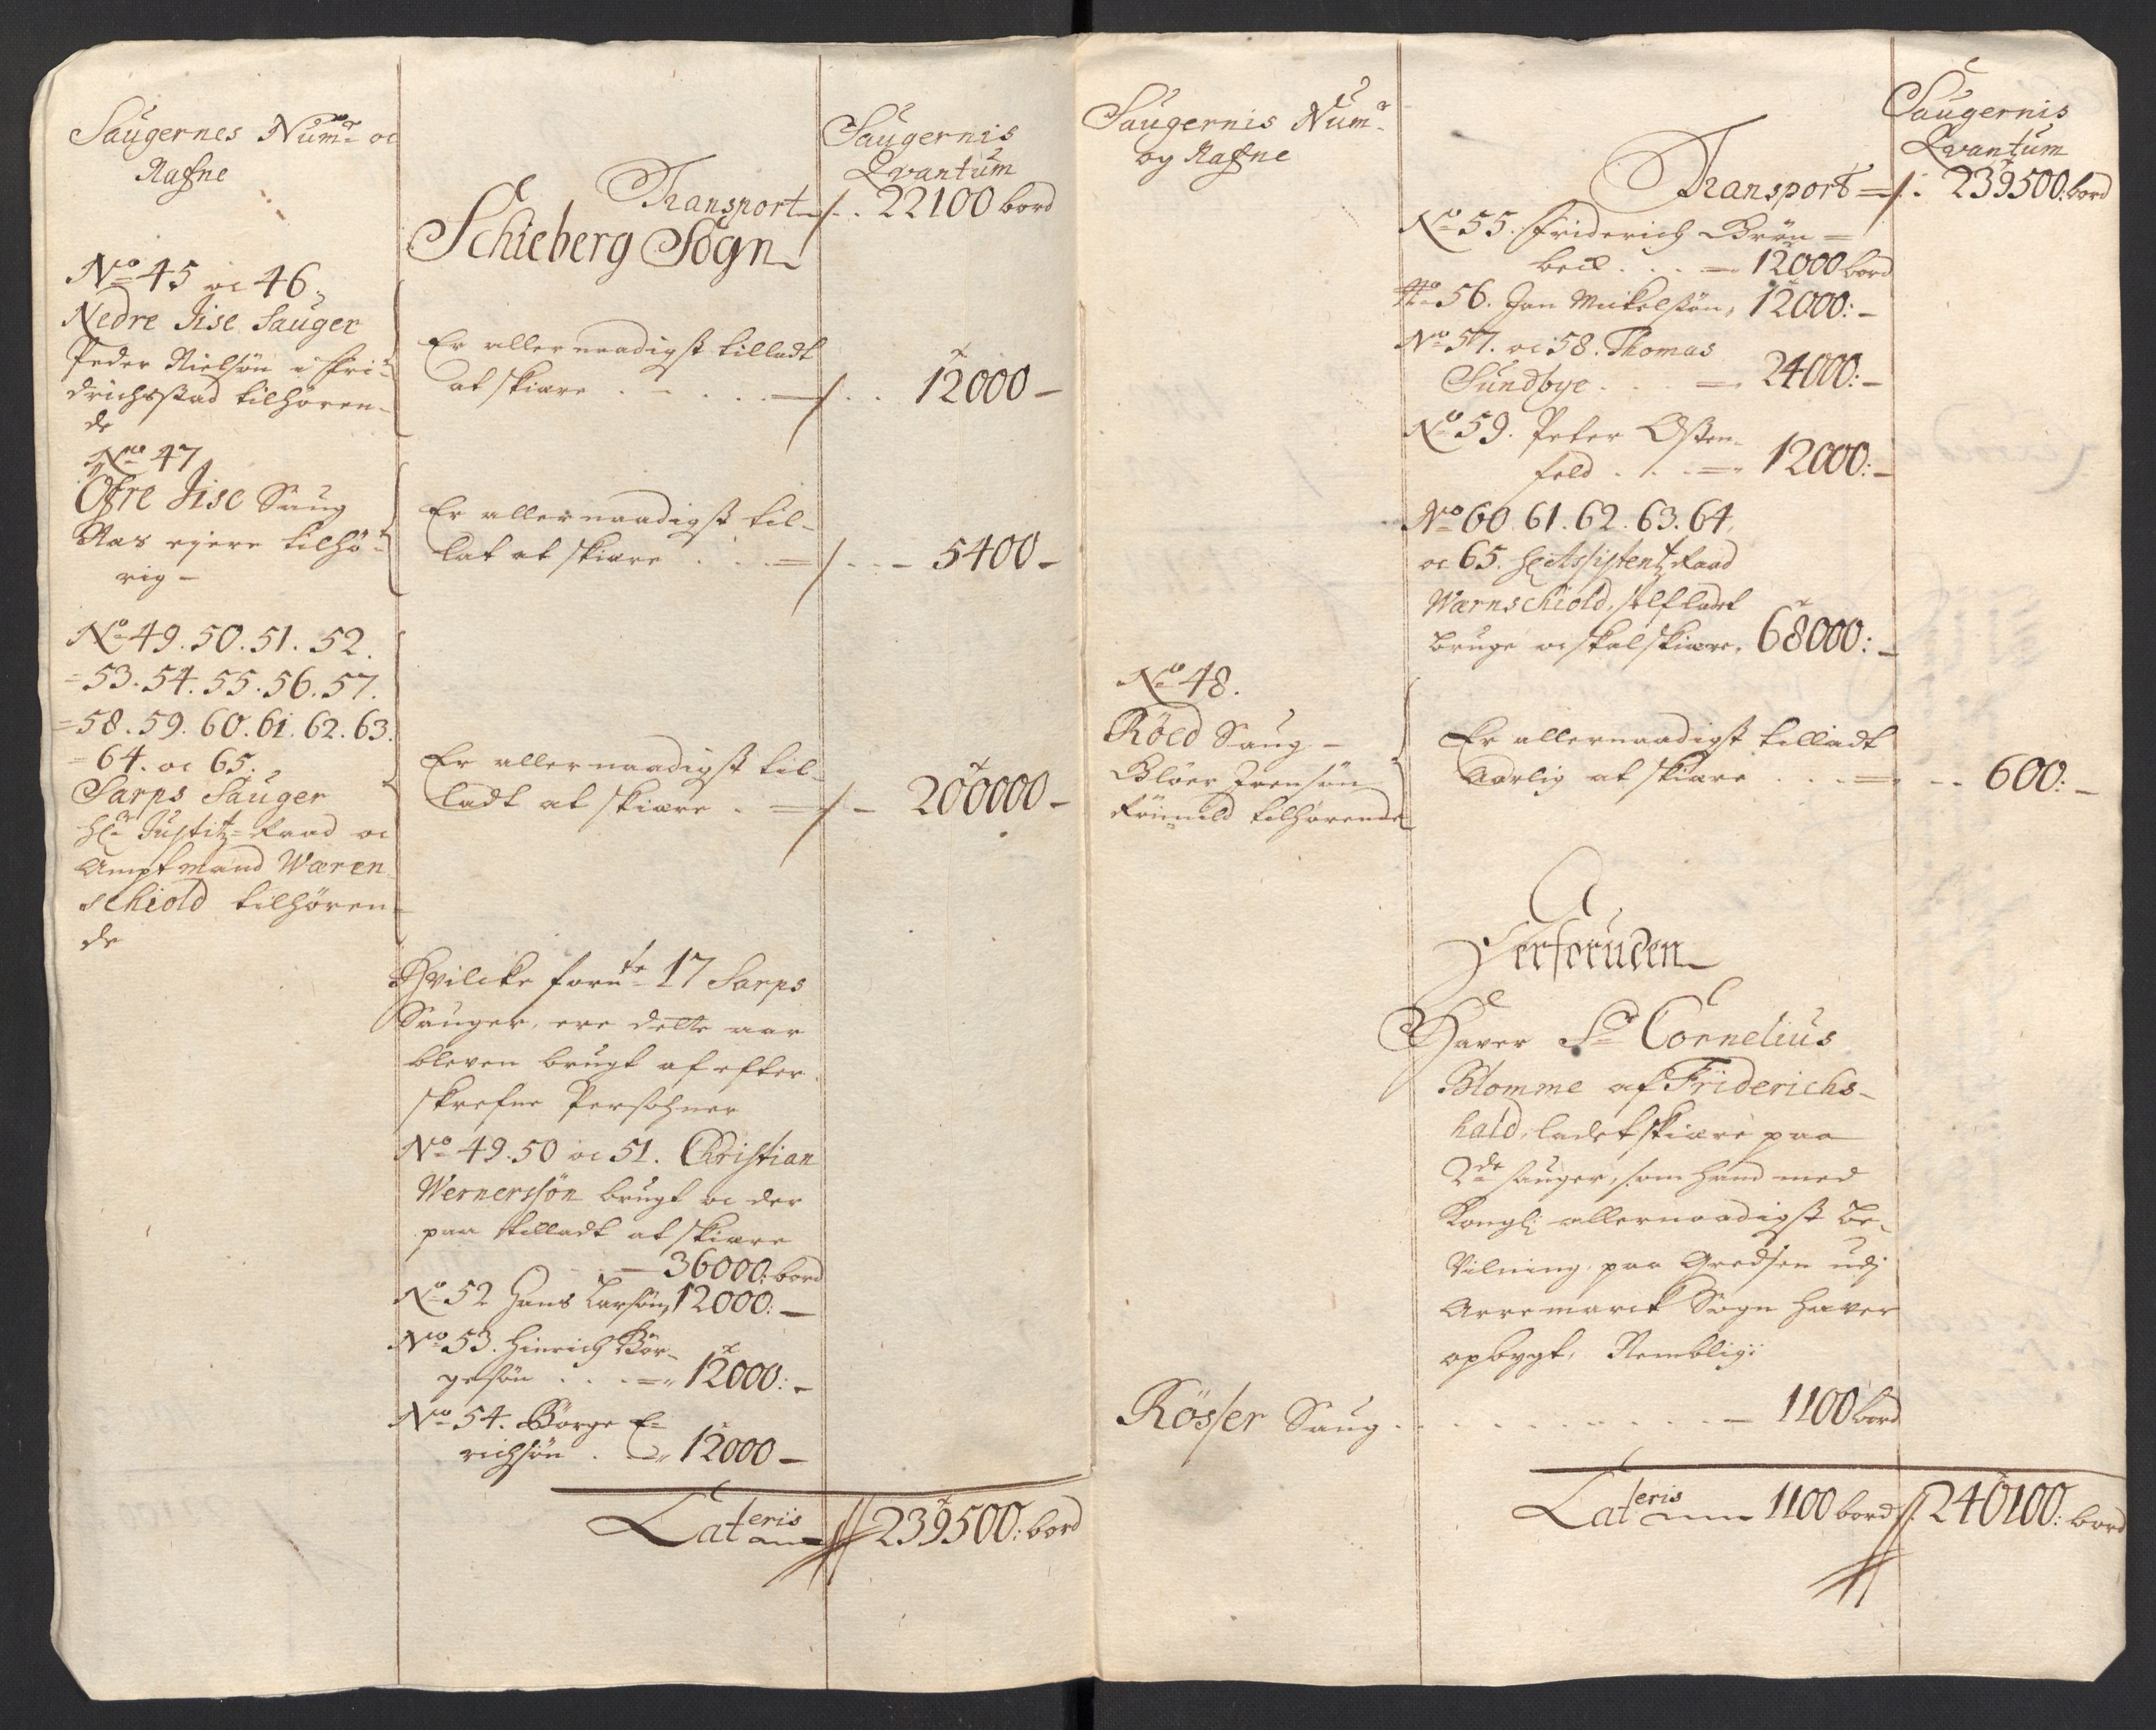 Saugernes Num: oc
Nafne
Saugernis
Qvantum
Transport 22100 bord
Schieberg Sogn
No 45 oc 46
Nedre Iise Sauger
Peder Nielsøn i Fri-
drichsstad tilhören-
de
Er allernaadigst tilladt
at skiære . . . 12000 -
No 47
Öfre Iise Saug
Aas eyere tilhö-
rig -
Er allernaadigst til-
lat at skiære . . . 5400 -
No 49. 50. 51. 52.
53. 54. 55. 56. 57.
58. 59. 60. 61. 62. 63.
64. oc 65.
Sarps Sauger
Hr Justitz-Raad oc
Amptmand Waren-
schiold tilhören-
de
Er allernaadigst til-
ladt at skiære . 200000 -
Hvilcke fornte 17 Sarps
Sauger, ere dette aar
bleven brugt af efter-
skrefne Persohner
No 49. 50 oc 51. Christian
Wernersøn brugt oc der
paa tilladt at skiære
36000: bord
No 52 Hans Larsøn, 12000: -
No 53. Hinrich Bör-
gesøn . . . 12000: -
No 54. Börge E-
richsøn . 12000 -
Lateris 239500: bord
Saugernis Num:
og Nafne
Saugernis
Qvantum
Transport 239500: bord
No 55. Friderich Brön-
beck . . . 12000 bord
No 56. Jan Mickelsøn, 12000: -
No 57. oc 58. Thomas
Sundbye . . . 24000: -
No 59. Peter Osten-
feld . . . 12000: -
No 60. 61. 62. 63. 64.
oc 65. Hr Assistentz Raad
Warnschiold, self ladet
bruge oc skal skiære, 68000: -
No 48.
Röed Saug -
Blöer Ivensøn
tilhørende
Er allernaadigst tilladt
Aarlig at skiære . . . 600: -
Derforuden
Haver Sr Cornelius
Blomme af Friderichs-
hald, ladet skiære paa
2de sauger, som hand med
Kongl: allernaadigst be-
vilning, paa Gredsen udj
Arremarck Sogn haver
opbygt, Nemblig:
Rösser Saug . . . 1100 bord
Lateris 1100 bord 240100: bord